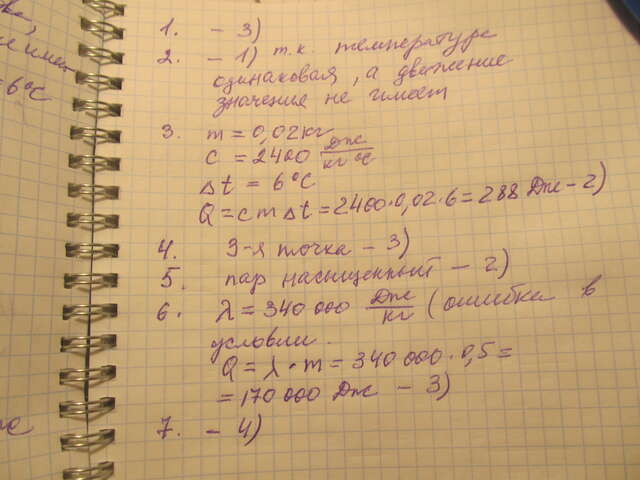 1. - 3)
2. - 1) т.к. температура
одинаковая, а движение
значения не имеет
3. m = 0,02 кг
c = 2400 Дж/кг °C
Δt = 6°C
Q = cmΔt = 2400·0,02·6 = 288 Дж - 2)
4. 3-я точка - 3)
5. пар насыщенный - 2)
6. λ = 340 000 Дж/кг (ошибка в
условии.
Q = λ·m = 340 000·0,5 =
= 170 000 Дж - 3)
7. - 4)
= 6°C